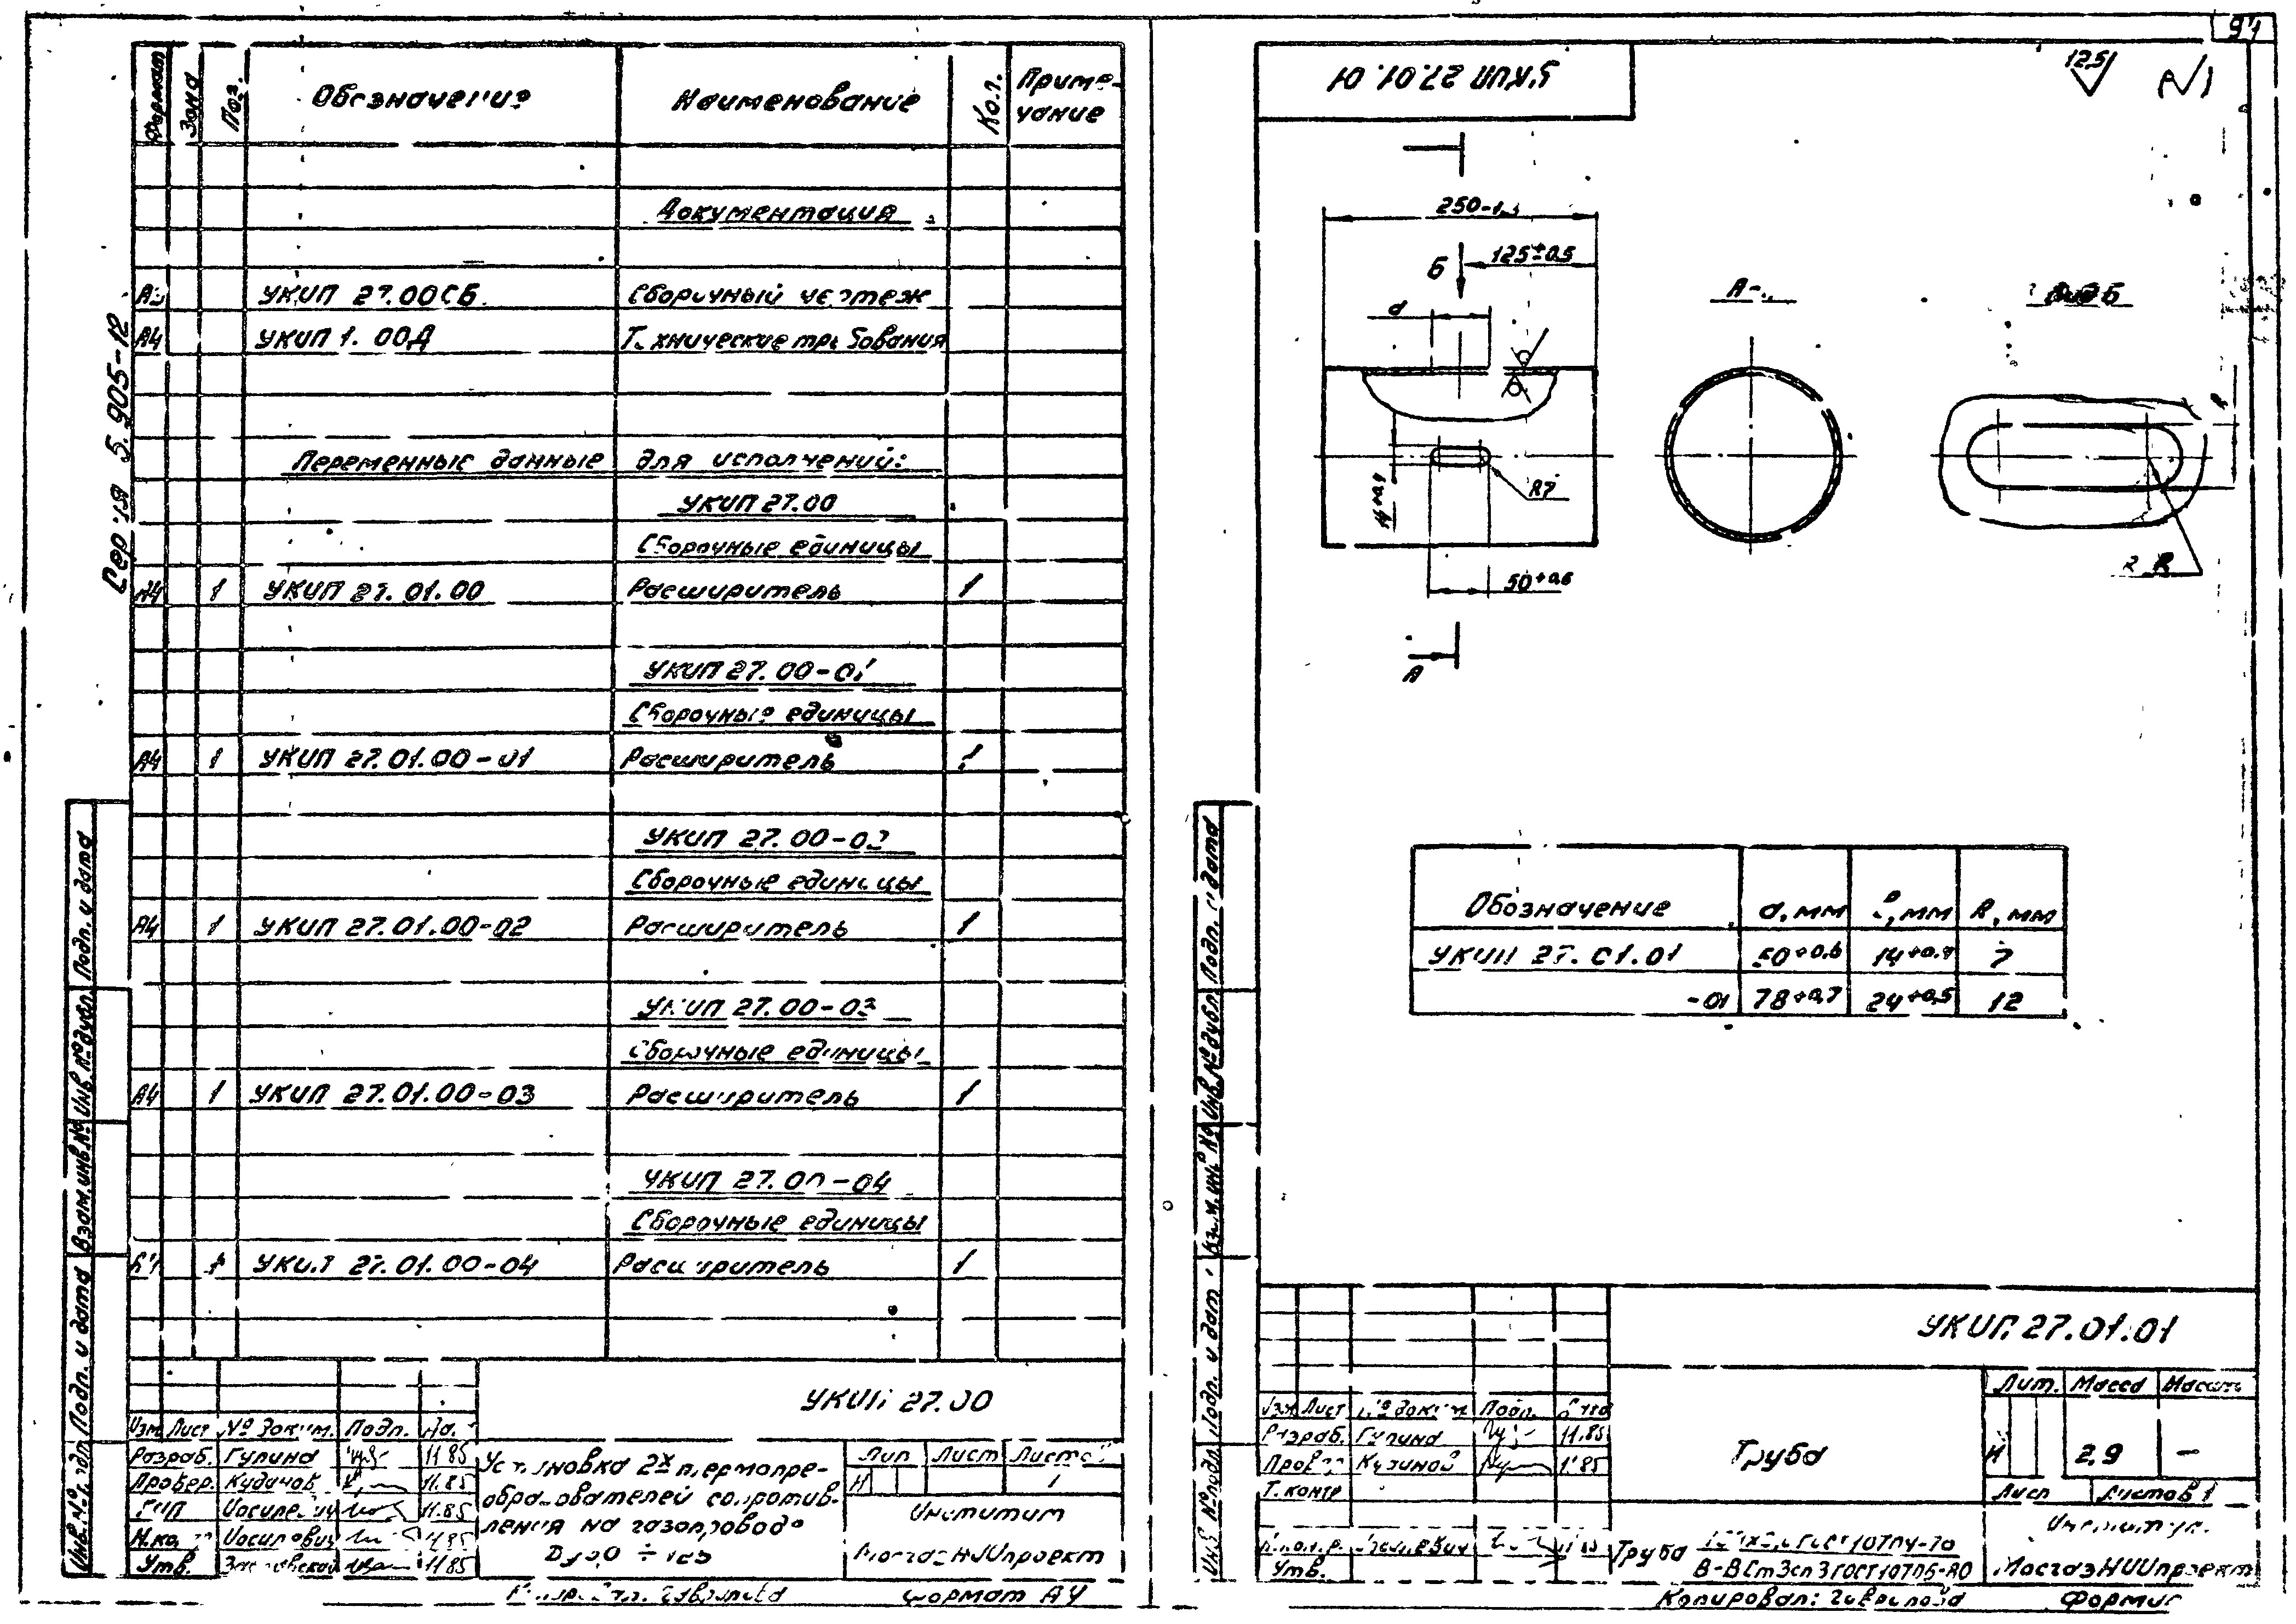 Серия 5.905-12
Формат Зона Поз. Обозначение Наименование Кол. Приме-
чание
Документация
А3 УКИП 27.00СБ Сборочный чертеж
А4 УКИП 1.00Д Технические требования
Переменные данные для исполнений:
УКИП 27.00
Сборочные единицы
А4 1 УКИП 27.01.00 Расширитель 1
УКИП 27.00-01
Сборочные единицы
А4 1 УКИП 27.01.00-01 Расширитель 1
УКИП 27.00-02
Сборочные единицы
А4 1 УКИП 27.01.00-02 Расширитель 1
УКИП 27.00-03
Сборочные единицы
А4 1 УКИП 27.01.00-03 Расширитель 1
УКИП 27.00-04
Сборочные единицы
А4 1 УКИП 27.01.00-04 Расширитель 1
Инв. № подл. Подп. и дата Взам. инв. № Инв. № дубл. Подп. и дата
УКИП 27.00
Изм. Лист № докум. Подп.
Разраб. Гулина 11.85
Провер. 11.85
ГИП 11.85
Иосилович 11.85
Утв. 11.85
Установка 2х термопре-
образователей сопротив-
ления на газопроводе
Лист
И 1
Институт
МосгазНИИпроект
Формат А4
94
УКИП 27.01.01
12,5
250
Б 125±0,5
d
А
Вид Б
R7
50+0,6
2 R
А
Обозначение d, мм ℓ, мм R, мм
УКИП 27.01.01 50+0,6 14+0,4 7
-01 78+0,7 24+0,5 12
Инв. № подл. Подп. и дата Инв. № дубл. Подп. и дата
УКИП 27.01.01
Изм. Лист № докум. Подп. Дата
Разраб. Гулина 11.85
Пров. 11.85
Т. контр
Утв.
Труба
Лит. Масса Масшт.
И 2,9 —
Лист Листов 1
Труба ГОСТ 10704-76
В-ВСт3сп3 ГОСТ 10706-80
Институт
МосгазНИИпроект
Копировал: Формат